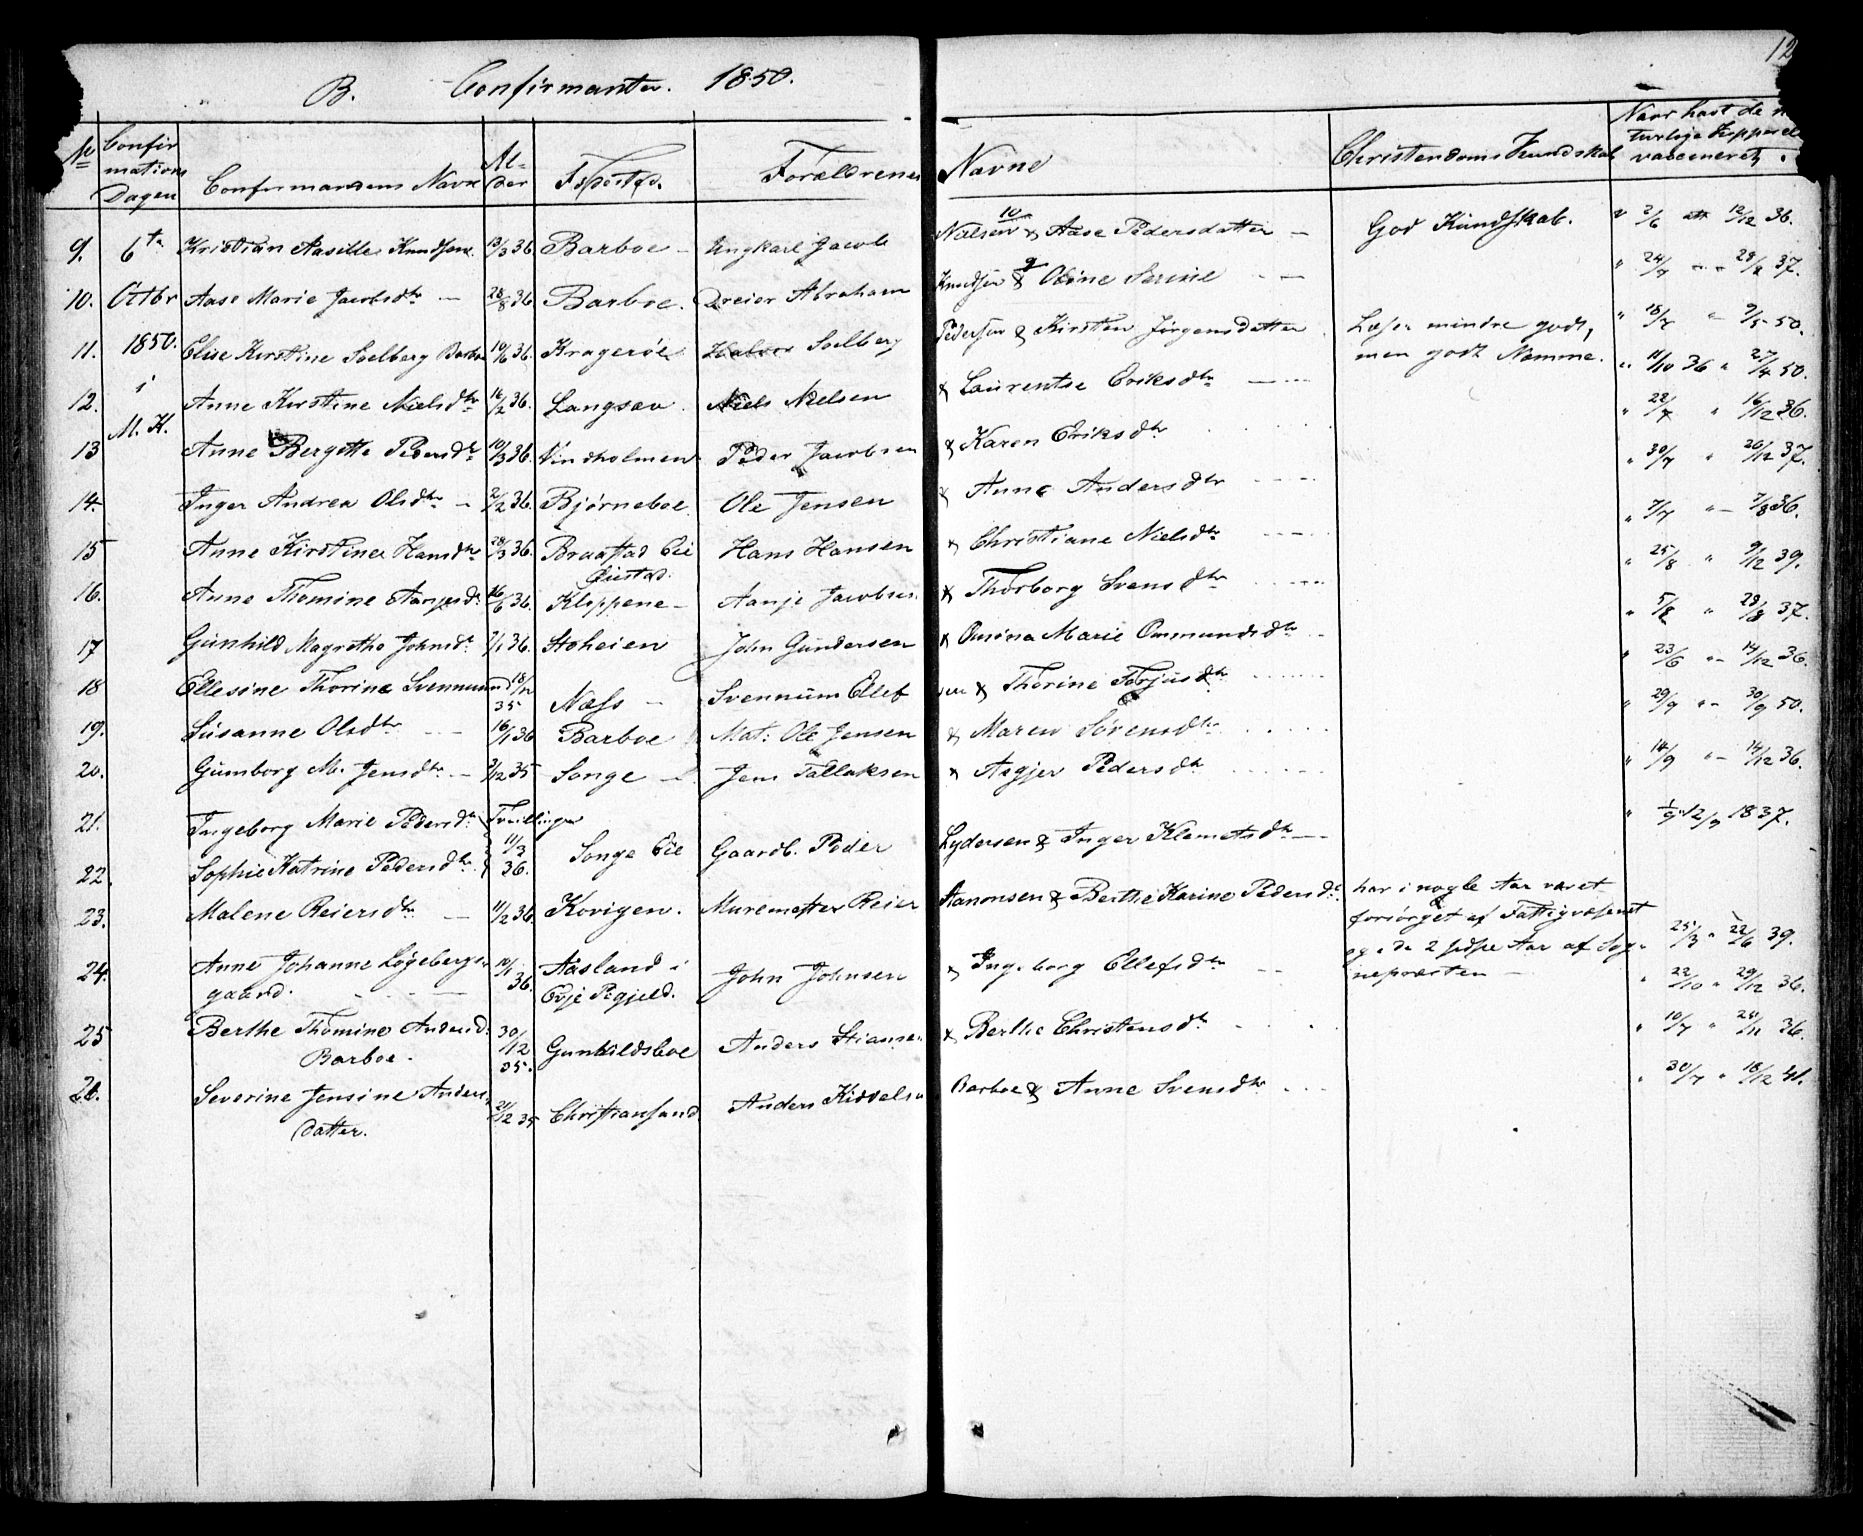 12
B. Confirmanter. 1850.
No Confirmations Dagen Confirmandens Navn Alder Fødested. Forældrenes Navne Christendoms Kundskab Naar havt de vaccineret
9. 6te Kristian Aasille Knudsen 13/3 36 Barboe - Ungkarl Jacob Nielsen & Aase Pedersdatter - God Kundskab. 2/6 12/12 36.
10. Octbr Aase Marie Jacobsdtr - 28/8 36 Barboe. Dreier Abraham Knudsen & Oline Serine - - 24/7 28/8 37.
11. 1850. Elise Kirstine Solberg Barboe 10/6 36. Kragerøe Solberg Pedersen & Kirsten Jørgensdatter Læser mindre godt, 18/7 9/5 50.
men godt Nemme.
12. i Anne Kirstine Nielsdtr 16/2 36. Langsæv. Niels Nielsen & Laurentse Eriksdtr - - 11/10 36 27/4 50.
13 M. K. Anne Bergitte Pedersdtr 10/3 36. Vindholmen Peder Jacobsen & Karen Eriksdtr 22/7 16/12 36.
14. Inger Andrea Olsdtr - 2/2 36. Bjørneboe Ole Jensen & Anne Andersdtr 30/7 20/12 37.
15 Anne Kirstine Hansdtr 28/3 36. Braastad Eie Hans Hansen & Christiane Nielsdtr 7/7 7/8 36.
16. Anne Thomine Aanjesdtr 16/6 36. Kloppene - Aanje Jacobsen & Thorborg Svensdtr 25/8 9/12 39.
17 Gunhild Magrethe Johnsdtr 7/1 36. Stoheien John Gundersen & Omina Marie Ommundsdtr 5/8 28/8 37.
18 Ellesine Thorine Svennum 18/12 35 Næss - Svennum Ellef & Thorine Terjusdtr 23/6 14/12 36.
19. Susanne Olsdtr - - 16/1 36 Barboe Mat. Ole Jensen & Maren Sørensdtr 29/9 30/9 50.
20. Gumborg M. Jensdtr - 3/12 35 Songe - Jens Tallaksen & Asgjer Pedersdtr 14/9 14/12 36.
21. Ingeborg Marie Pedersdtr Tvillinger
11/3 36. Songe Eie Gaardb. Peder Lydersen & Inger Klemetsdtr - - 12/9 1837.
22. Sophie Katrine Pedersdtr
23. Malene Reiersdtr - 11/2 36. Kovigen. Muremester Reier Aanonsen & Berthe Karine Pedersdtr. har i nogle Aar været
forsørget af Fattigvæsenet
og de 2 sidste Aar af Sog-
nepræsten - 25/3 22/6 39.
24. Anne Johanne Løgebergs-
gaard. 10/1 36. Aasland i
Evje Pgjeld. John Johnsen & Ingeborg Ellefsdtr - - 22/10 29/12 36.
25 Berthe Thomine Andersd.
Barboe. 30/12 35. Gunhildsboe Anders Stiansen & Berthe Christensdtr 10/7 36.
26. Severine Jensine Anders
datter. 21/12 35 Christiansand Anders Kiddelsen Barboe & Anne Svensdtr 30/7 18/12 41.